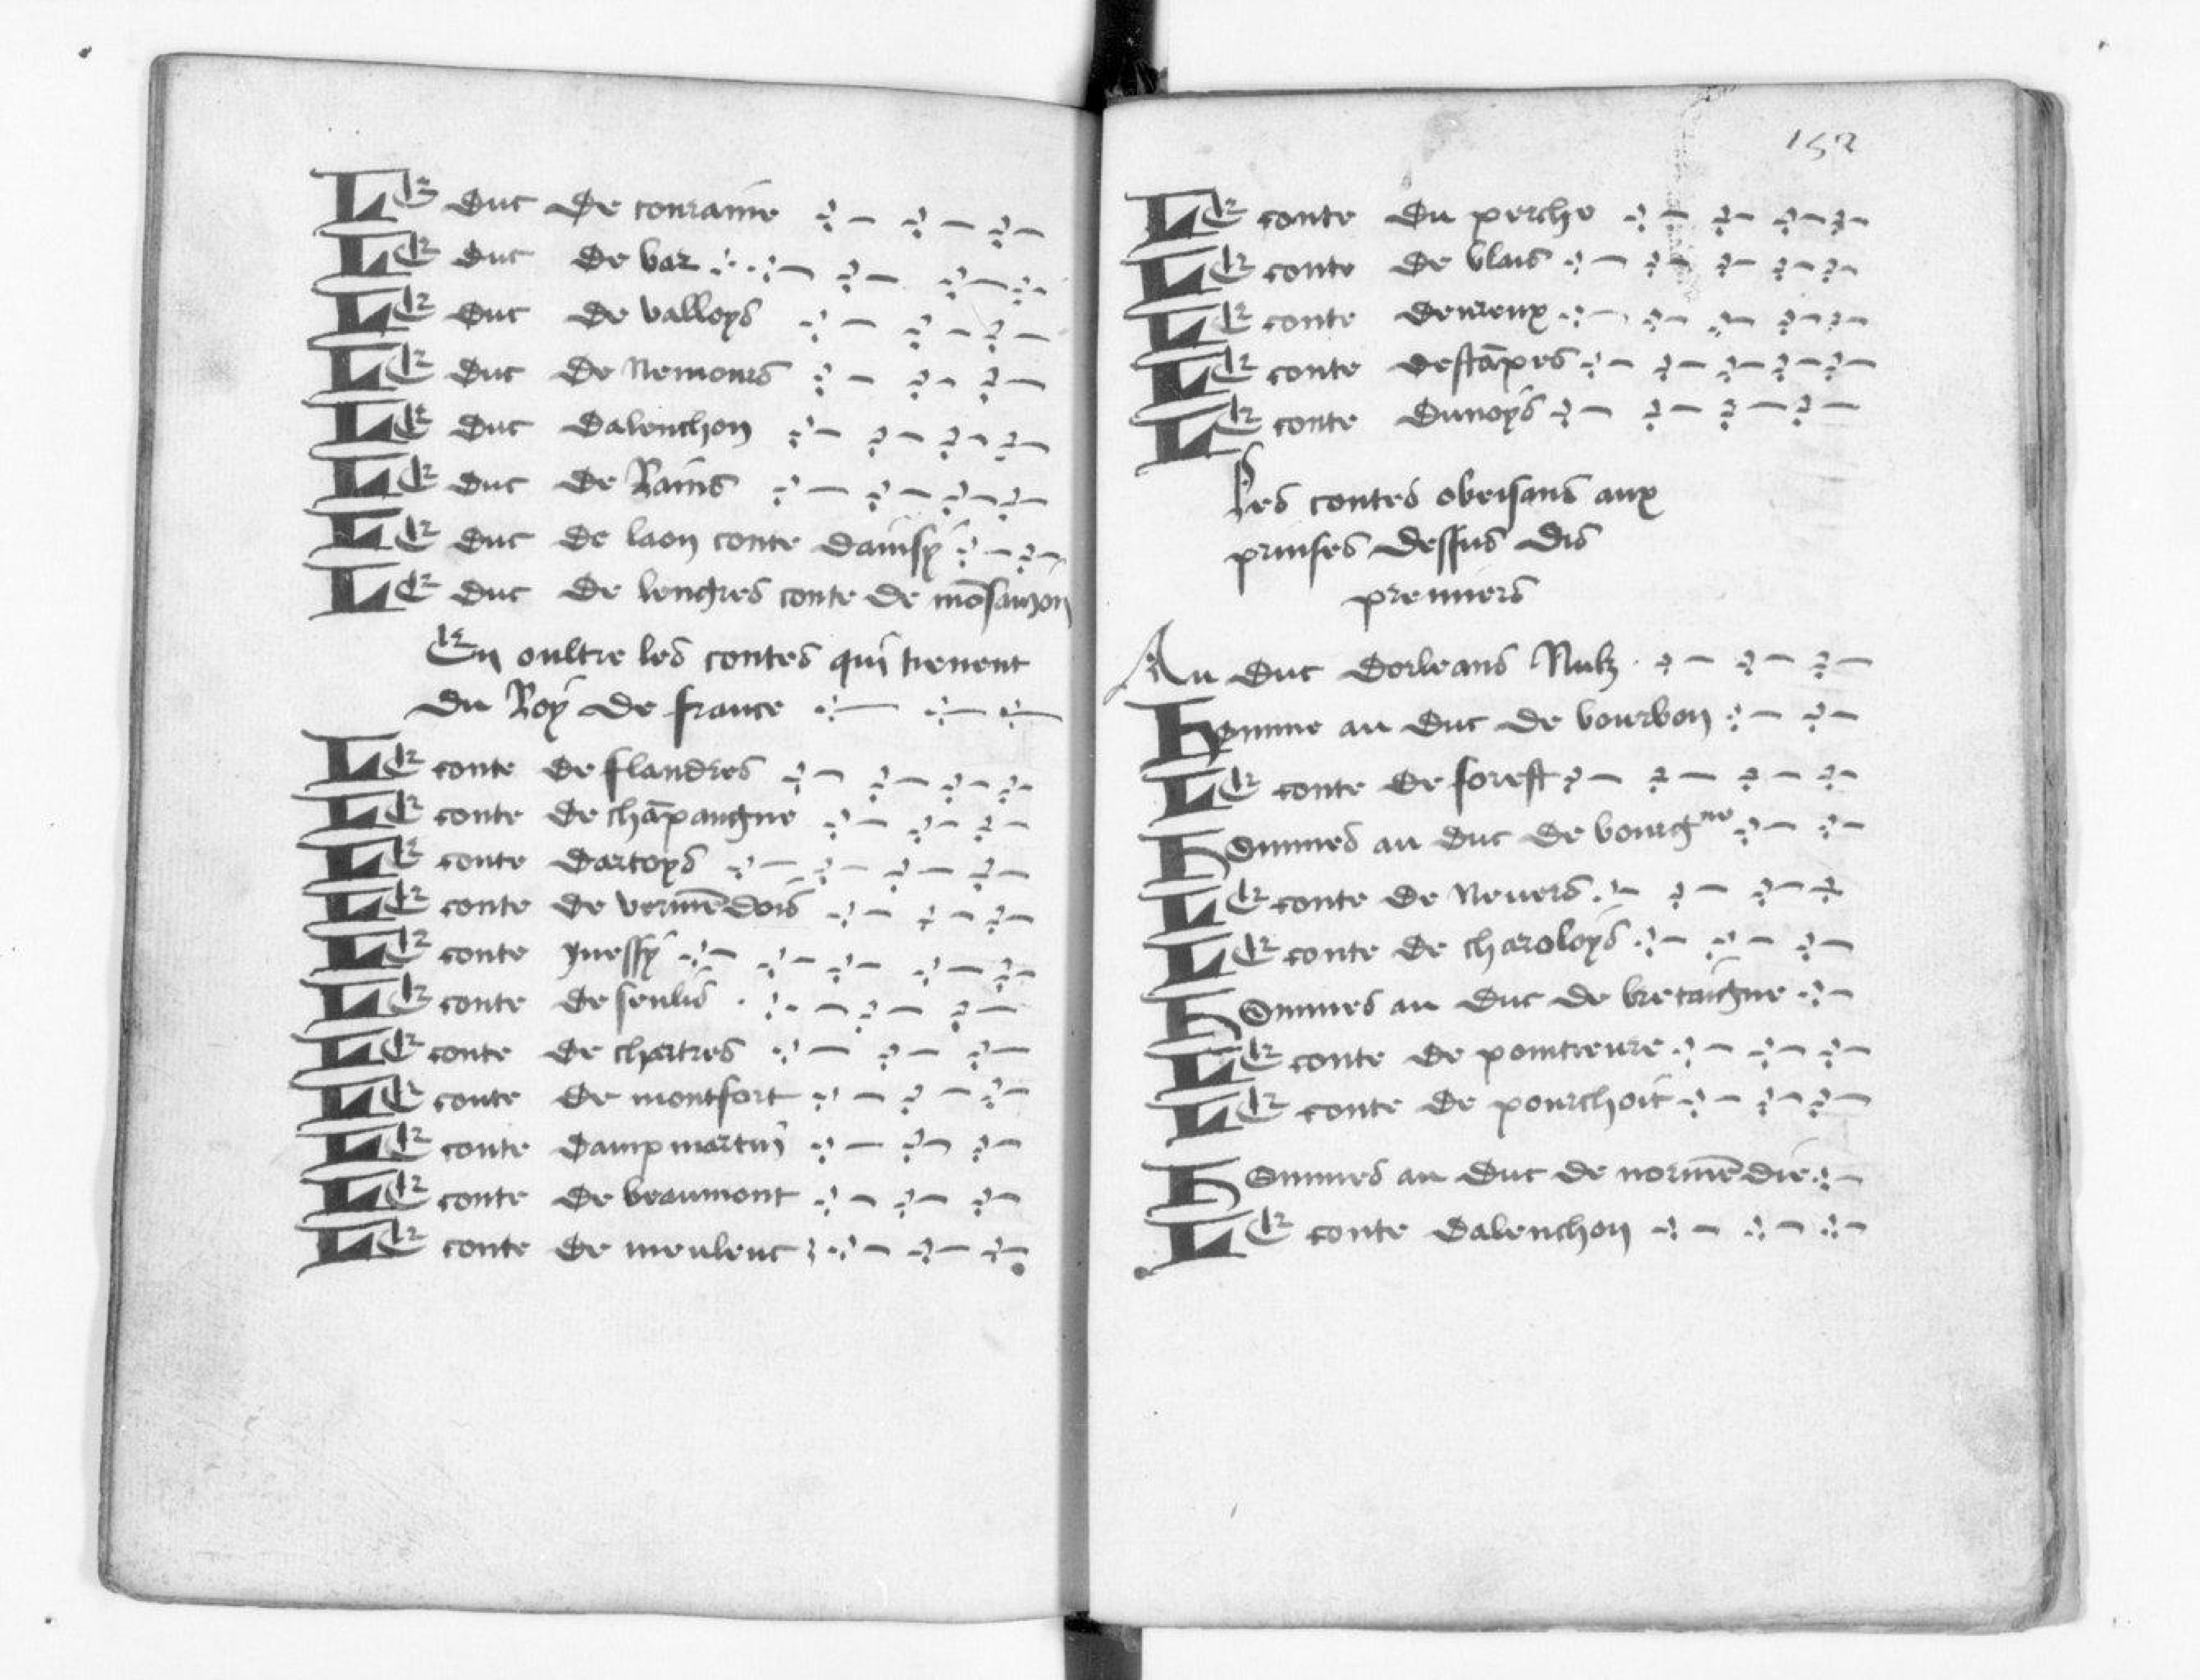 LE duc de touraine
LE duc de bar
LE duc de valloys
LE duc de Nemours
LE duc dalenchon
LE duc de Rains
LE duc de laon conte danisy
LE duc de lengres conte de mōsauion
En oultre les contes qui tienent
du Roy de france
LE conte de flandres
LE conte de chāpaigne
LE conte dartoys
LE conte de vermēdois
LE conte
LE conte de senlis
LE conte de chartres
LE conte de montfort
LE conte dampmartin
LE conte de beaumont
LE conte de meulenc
152
LE conte du perche
LE conte de blais
LE conte deureux
LE conte destāpes
LE conte dunoys
Les contes obeisans aux
prinses dessus dis
premiers
Au duc dorleans Nulz
Homme au duc de bourbon
LE conte de forest
Hommes au duc de bourgne
LE conte de Neuers
LE conte de charoloys
Hommes au duc de bretaigne
LE conte de pointieure
LE conte de pourchoit
Hommes au duc de normēdie
LE conte dalenchon